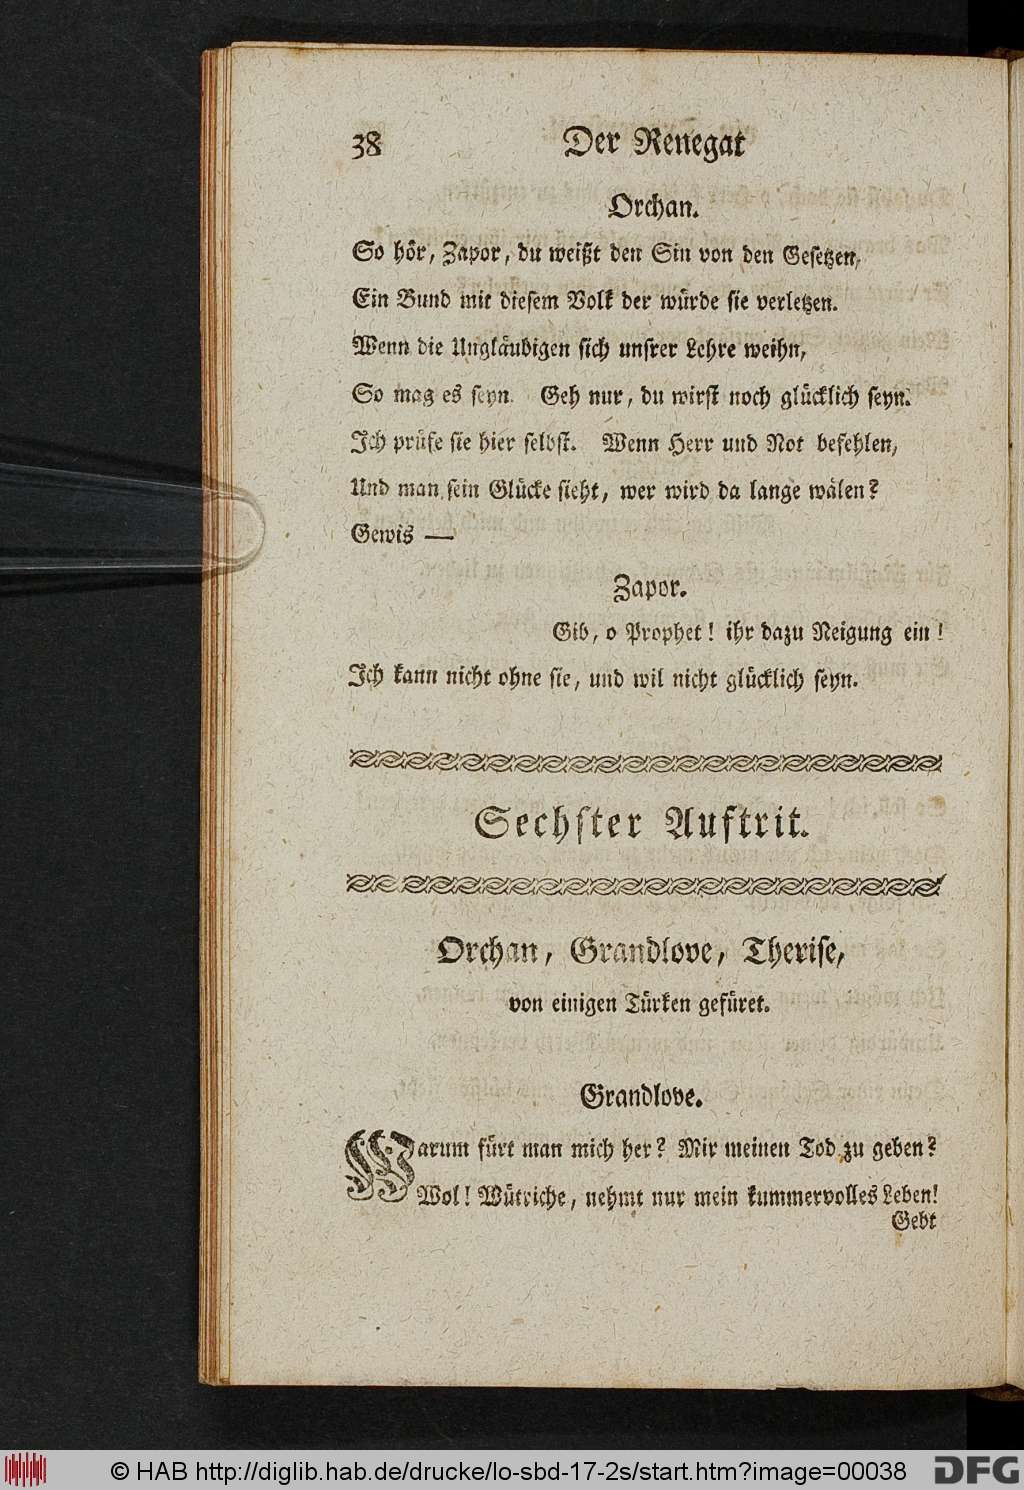 38 Der Renegat
Orchan.
So hör, Zapor, du weißt den Sin von den Gesetzen,
Ein Bund mit diesem Volk der würde sie verletzen.
Wenn die Ungläubigen sich unsrer Lehre weihn,
So mag es seyn. Geh nur, du wirst noch glücklich seyn.
Ich prüfe sie hier selbst. Wenn Herr und Not befehlen,
Und man sein Glücke sieht, wer wird da lange wälen?
Gewis —
Zapor.
Gib, o Prophet! ihr dazu Neigung ein!
Ich kann nicht ohne sie, und wil nicht glücklich seyn.
Sechster Auftrit.
Orchan, Grandlove, Therise,
von einigen Türken gefüret.
Grandlove.
Warum fürt man mich her? Mir meinen Tod zu geben?
Wol! Wütriche, nehmt nur mein kummervolles Leben!
Gebt
© HAB http://diglib.hab.de/drucke/lo-sbd-17-2s/start.htm?image=00038
DFG